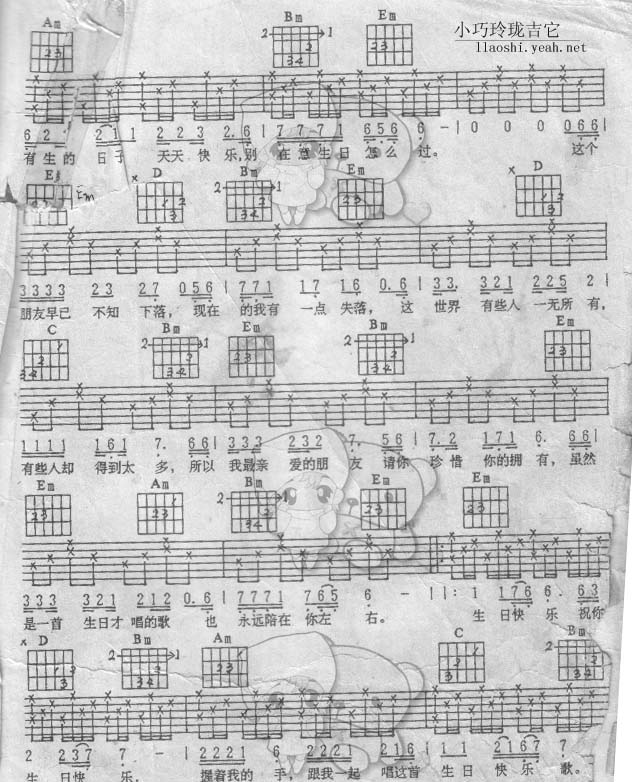 小巧玲珑吉它
llaoshi.yeah.net
Am Bm Em
2 1
6 2 2 2 1 1 2 2 2 3 2. 6 | 7 7 7 1 6 5 6 6 — | 0 0 0 0 6 6 |
有生的 日子 天天 快乐,别 在意生日 怎么 过。 这个
Em D Bm Em D
3 3 3 3 2 3 2 7 0 5 6 | 7 7 1 1 7 1 6 0. 6 | 3 3. 3 2 1 2 2 5 2 |
朋友早已 不知 下落, 现在 的我有 一点 失落, 这 世界 有些人 一无所有,
C Bm Em Bm Em
2 1 2 1
1 1 1 1 1 6 1 7. 6 6 | 3 3 3 2 3 2 7 5 6 | 7. 2 1 7 1 6. 6 6 |
有些人却 得到太 多, 所以 我最亲 爱的朋 友 请你 珍惜 你的拥 有, 虽然
Em Am Bm Em Em
2
3 3 3 3 2 1 2 1 2 0. 6 | 7 7 7 1 7 6 5 6 — | |: 1 1 7 6 6. 6 3 |
是一首 生日才 唱的歌 也 永远陪在 你左 右。 生 日快 乐 祝你
D Bm Am C Bm
2 1 2
2 2 3 7 7 — | 2 2 2 1 6. 2 2 2 1 | 1 1 2 1 6 7 7 |
生 日快 乐, 握着我的 手, 跟我一起 唱这首 生日 快乐 歌。